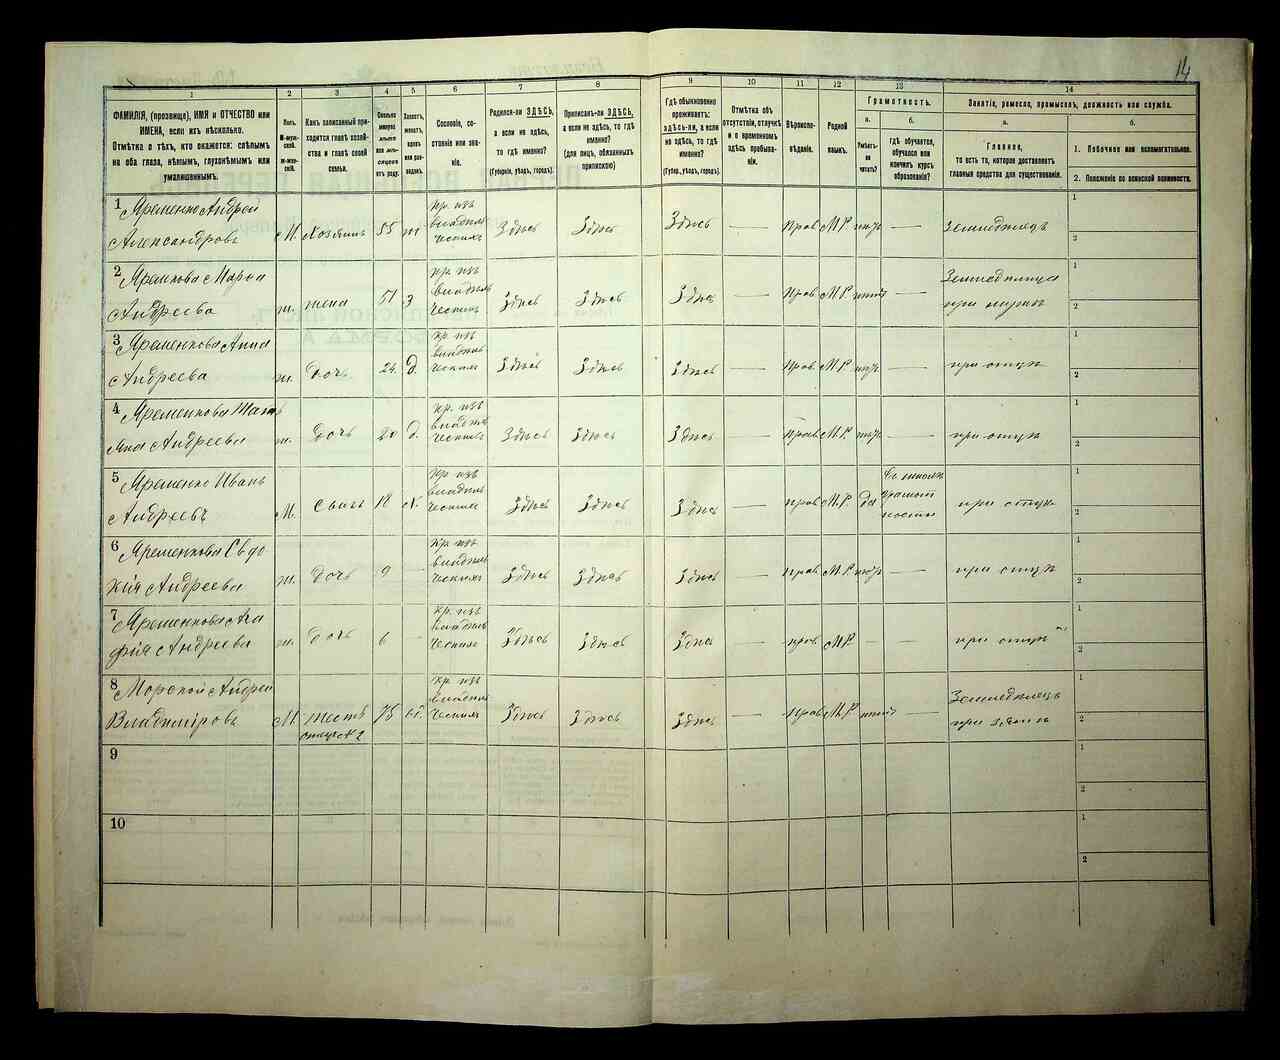 14
1
2
3
4
5
6
7
8
9
10
11
12
13
14
ФАМИЛІЯ, (прозвище), ИМЯ и ОТЧЕСТВО или
ИМЕНА, если ихъ нѣсколько.
Отмѣтка о тѣхъ, кто окажется: слѣпымъ
на оба глаза, нѣмымъ, глухонѣмымъ или
умалишеннымъ.
Полъ.
М-муж-
ской.
Ж-жен-
скій.
Какъ записанный при-
ходится главѣ хозяй-
ства и главѣ своей
семьи.
Сколько
минуло
лѣтъ
или мѣ-
сяцевъ
отъ роду.
Холостъ,
женатъ,
вдовъ
или раз-
веденъ.
Сословіе, со-
стояніе или зва-
ніе.
Родился-ли ЗДѢСЬ,
а если не здѣсь,
то гдѣ именно?
(Губернія, уѣздъ, городъ).
Приписанъ-ли ЗДѢСЬ,
а если не здѣсь, то гдѣ
именно?
(для лицъ, обязанныхъ
припискою)
Гдѣ обыкновенно
проживаетъ:
здѣсь-ли, а если
не здѣсь, то гдѣ
именно?
(Губерн.,уѣздъ, городъ).
Отмѣтка объ
отсутствіи, отлучкѣ
и о временномъ
здѣсь пребыва-
ніи.
Вѣроиспо-
вѣданіе.
Родной
языкъ.
Грамотность.
а.
Умѣетъ-
ли
читать?
б.
гдѣ обучается,
обучался или
кончилъ курсъ
образованія?
Занятіе, ремесло, промыселъ, должность или служба.
а.
Главное,
то есть то, которое доставляетъ
главныя средства для существованія.
б.
1. Побочное или вспомогательное.
2. Положеніе по воинской повинности.
1 Яременко Андрей
Александровъ
М. Хозяинъ 55 ж
Кр. изъ
владѣль
ческихъ
Здѣсь Здѣсь Здѣсь — Прав М.Р. нѣтъ —
Земледѣлецъ
1
2
2 Яременкова Марья
Андреева
ж. жена 51 З
Кр. изъ
владѣль
ческихъ
Здѣсь Здѣсь Здѣсь — Прав М.Р. нѣтъ —
Земледѣлица
при мужѣ
1
2
3 Яременкова Анна
Андреева
ж. дочь 24. д.
Кр. изъ
владѣль
ческихъ
Здѣсь Здѣсь Здѣсь — Прав М.Р. нѣтъ —
при отцѣ
1
2
4 Яременкова Татья
яна Андреева
ж. дочь 20 д.
Кр. изъ
владѣль
ческихъ
Здѣсь Здѣсь Здѣсь — Прав М.Р. нѣтъ —
при отцѣ
1
2
5 Яременко Иванъ
Андреевъ
М. Сынъ 18 х.
Кр. изъ
владѣль
ческихъ
Здѣсь Здѣсь Здѣсь — прав М.Р. да
Въ школѣ
грамот
ности
при отцѣ
1
2
6 Яременкова Евдо
кія Андреева
ж. дочь 9 -
Кр. изъ
владѣль
ческихъ
Здѣсь Здѣсь Здѣсь — прав М.Р. нѣтъ —
при отцѣ
1
2
7 Яременкова Ага
фія Андреева
ж. дочь 6 -
Кр. изъ
владѣль
ческихъ
Здѣсь Здѣсь Здѣсь — прав М.Р. - —
при отцѣ
1
2
8 Морской Андрей
Владиміровъ
М. тесть 75 вд.
Кр. изъ
владѣль
ческихъ
Здѣсь Здѣсь Здѣсь — Прав М.Р. нѣтъ —
отецъ №2
Земледѣлецъ
при зятѣ
1
2
9
1
2
10
1
2